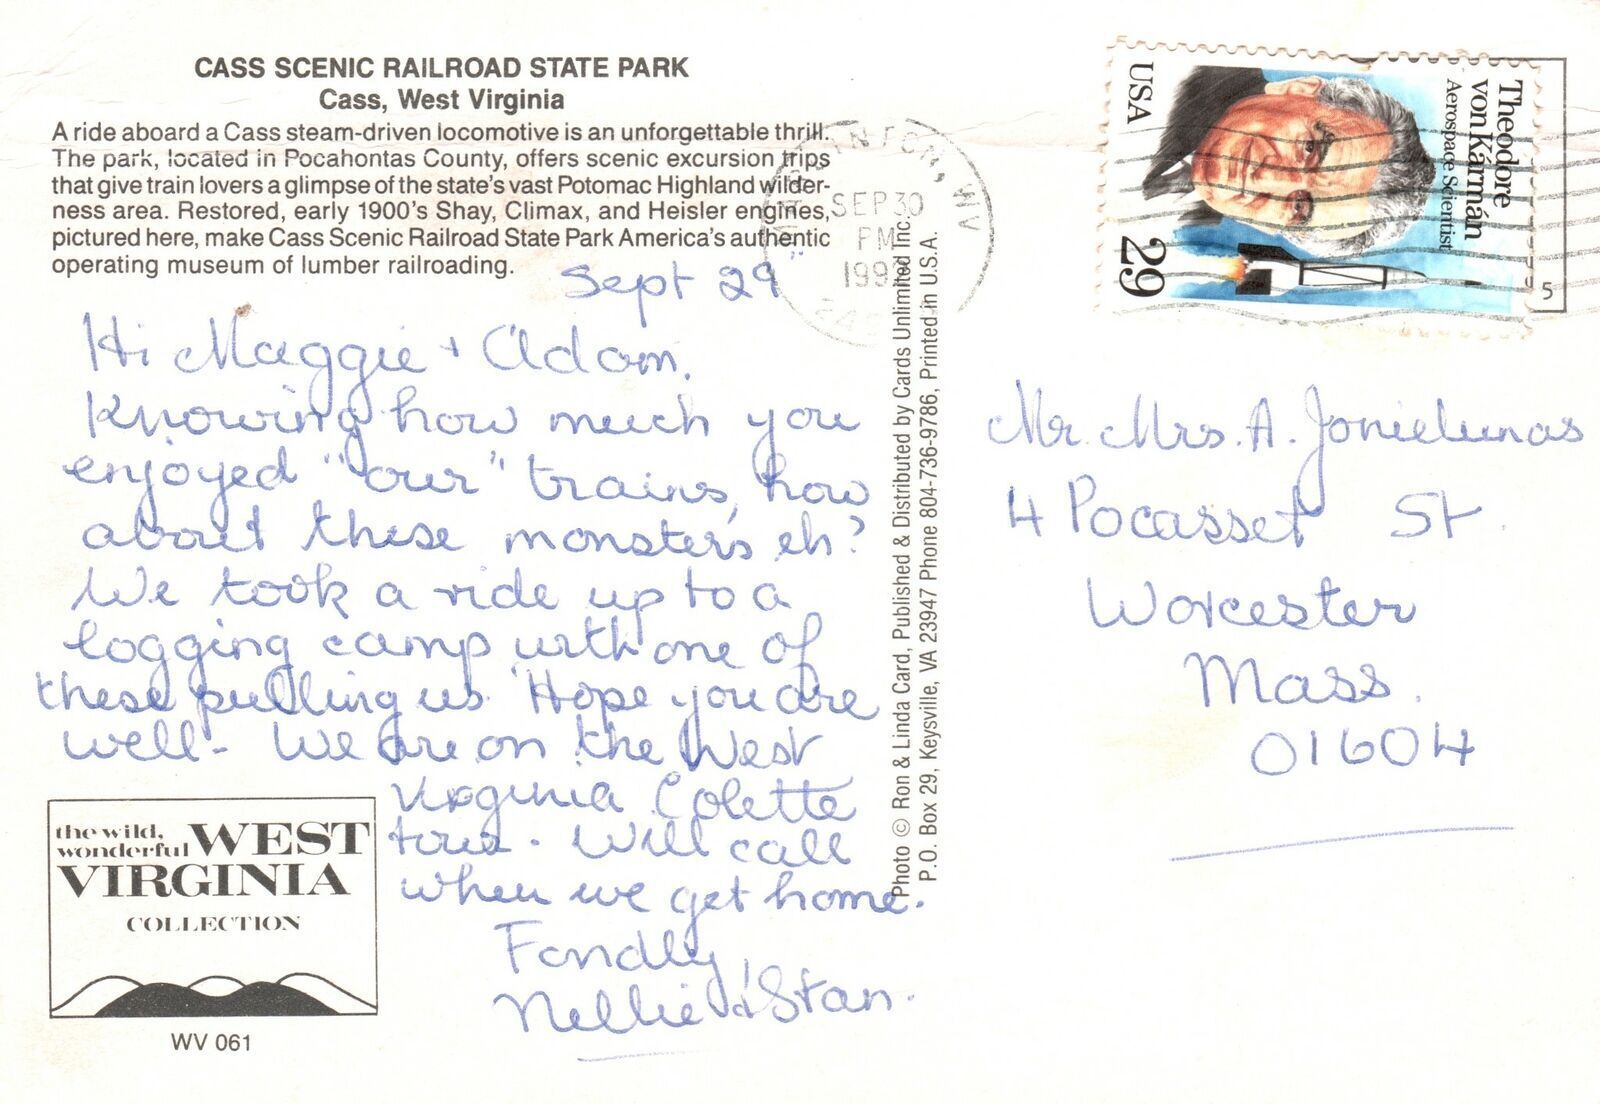 CASS SCENIC RAILROAD STATE PARK
Cass, West Virginia
A ride aboard a Cass steam-driven locomotive is an unforgettable thrill.
The park, located in Pocahontas County, offers scenic excursion trips
that give train lovers a glimpse of the state's vast Potomac Highland wilder-
ness area. Restored, early 1900's Shay, Climax, and Heisler engines,
pictured here, make Cass Scenic Railroad State Park America's authentic
operating museum of lumber railroading.
Sept 29"
Hi Maggie + Adam.
Knowing how much you
enjoyed "our" trains, how
about these monster's eh?
We took a ride up to a
logging camp with one of
these pulling us. Hope you are
well - We are on the West
Virginia Colette
tour. Will call
when we get home.
Fondly
Nellie & Stan.
the wild,
wonderful WEST
VIRGINIA
COLLECTION
WV 061
Photo © Ron & Linda Card, Published & Distributed by Cards Unlimited Inc.
P.O. Box 29, Keysville, VA 23947 Phone 804-736-9786, Printed in U.S.A.
WV
SEP 30
PM
Theodore
von Kármán
Aerospace Scientist
USA
29
5
Mr. Mrs. A. Jonielunas
4 Pocasset St.
Worcester
Mass.
01604